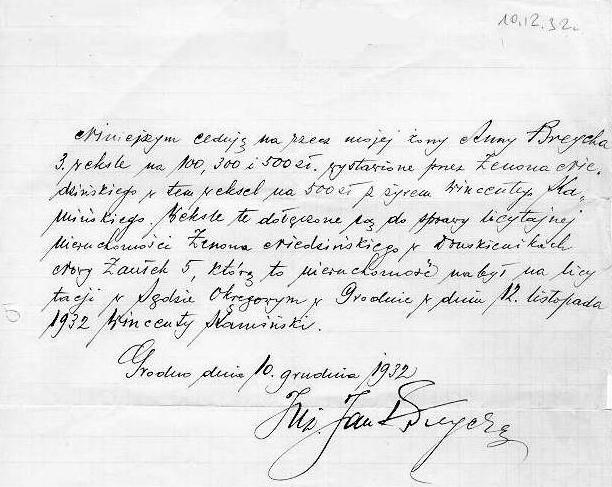 10.12.32.
Niniejszym ceduję na rzecz mojej żony Anny Breycha
3. weksle na 100, 300 i 500 zł. wystawione przez Zenona Nie-
dzińskiego w tem weksel na 500 zł z żyrem Wincentego Ka-
mińskiego. Weksle te dołączone są do sprawy licytajnej
nieruchomości Zenona Niedzińskiego w Druskienikach
Nowy Zaułek 5, którą to nieruchomość nabył na licy
tacji w Sądzie Okręgowym w Grodnie w dniu 12. listopada
1932 Wincenty Kamiński.
Grodno dnia 10. grudnia 1932
Inż. Jan Breycha